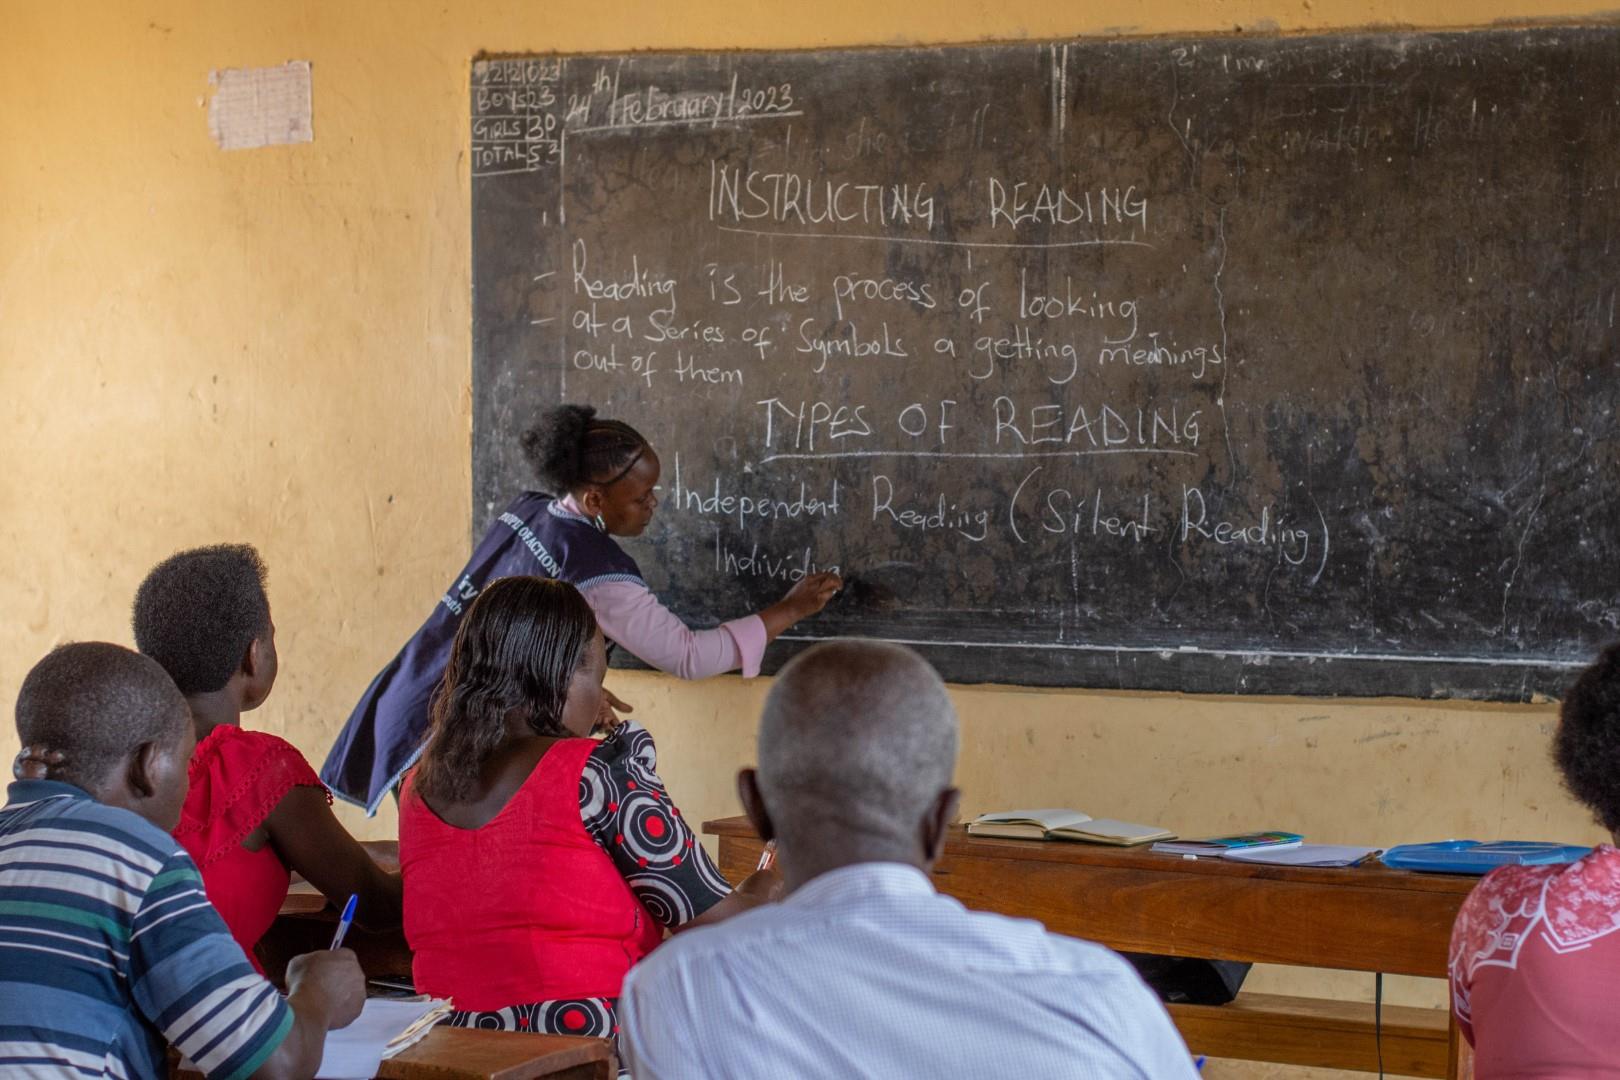 22/2/023
BOYS 23
GIRLS 30
TOTAL 53
24th/February/2023
INSTRUCTING READING
- Reading is the process of looking
- at a Series of Symbols a getting meanings
out of them
TYPES OF READING
- Independent Reading (Silent Reading)
Individua
PEOPLE OF ACTION